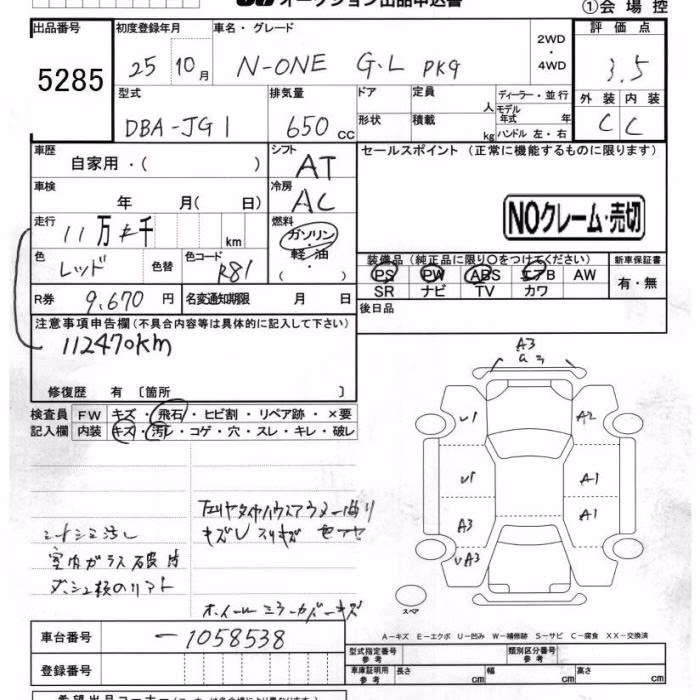 オークション出品申込書
①会場控
出品番号 初度登録年月 車名・グレード 2WD・4WD 評価点
5285 25 10月 N-ONE G.L PKG 3.5
型式 排気量 ドア 定員 人 ディーラー・並行 外装 内装
DBA-JG1 650cc 形状 積載 kg モデル年式 年 ハンドル 左・右 C C
車歴 自家用・( ) シフト AT セールスポイント (正常に機能するものに限ります)
車検 年 月( 日) 冷房 AC
NOクレーム・売切
走行 11万 千 km 燃料 ガソリン・軽油・( )
色 レッド 色替 色コード R81
装備品 (純正品に限り○をつけてください) 新車保証書
PS PW ABS エアB AW 有・無
SR ナビ TV カワ
R券 9,670円 名変通知期限 月 日 後日品
注意事項申告欄 (不具合内容等は具体的に記入して下さい)
112470km
修復歴 有 〔箇所 〕
検査員 FW キズ・飛石・ヒビ割・リペア跡・×要
記入欄 内装 キズ・汚レ・コゲ・穴・スレ・キレ・破レ
A3
U1 A2
A1
A3 A1
UA3
シートシミ汚し
室内ガラス
キズU スリキズ
ホイールミラーカバーキズ
スペア
A-キズ E-エクボ U-凹み W-補修跡 S-サビ C-腐食 XX-交換済
車台番号 -1058538
型式指定番号 参考 類別区分番号 参考
登録番号 車庫証明用 参考 長さ 幅 高さ
希望出品コーナー